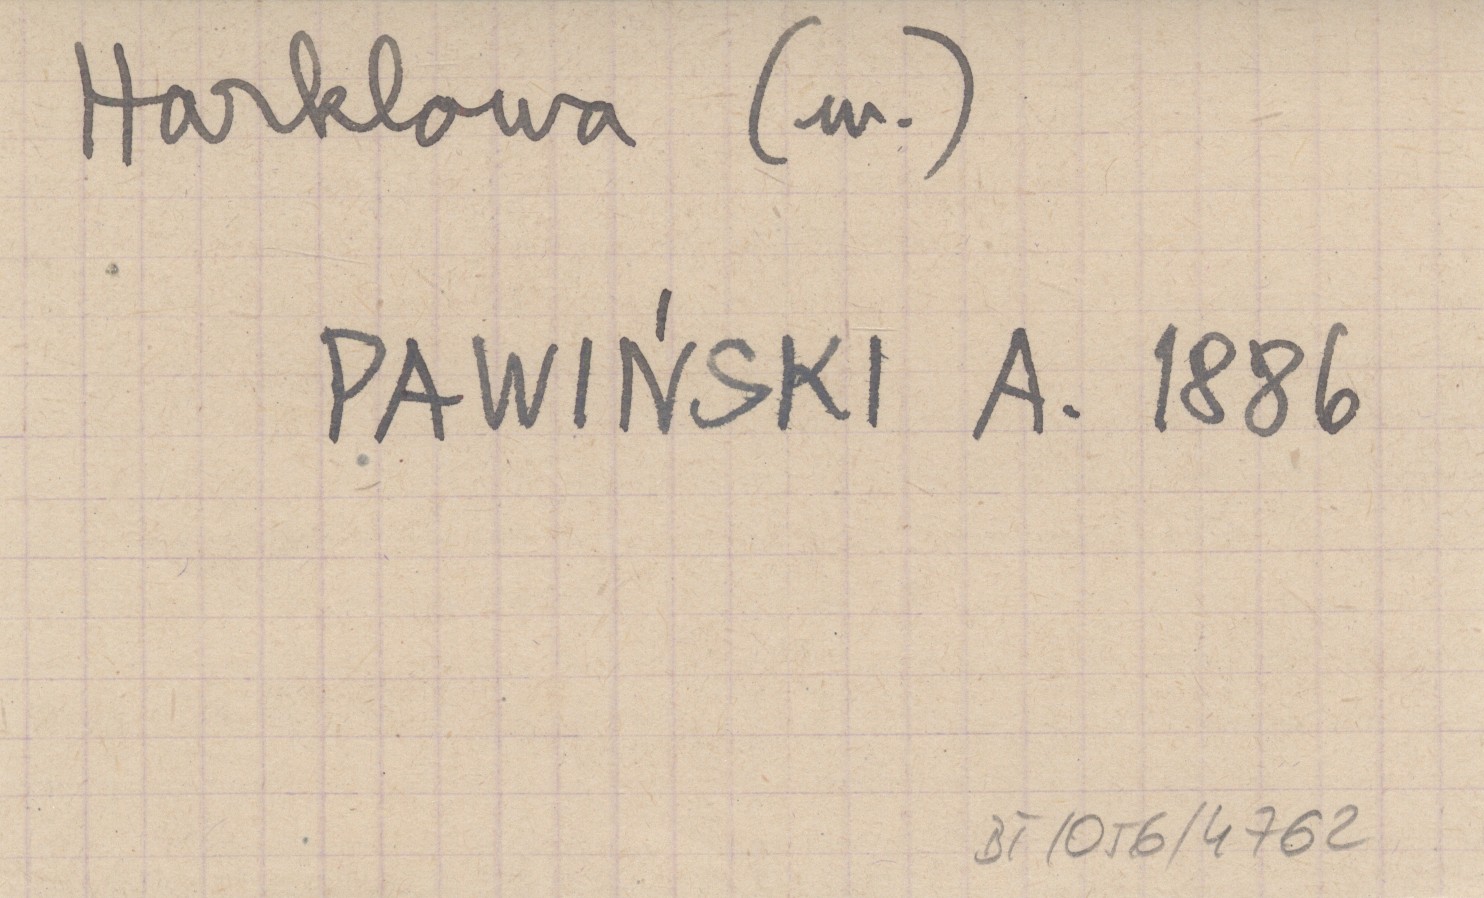 Harklowa (m.)
PAWIŃSKI A. 1886
BT/056/4762